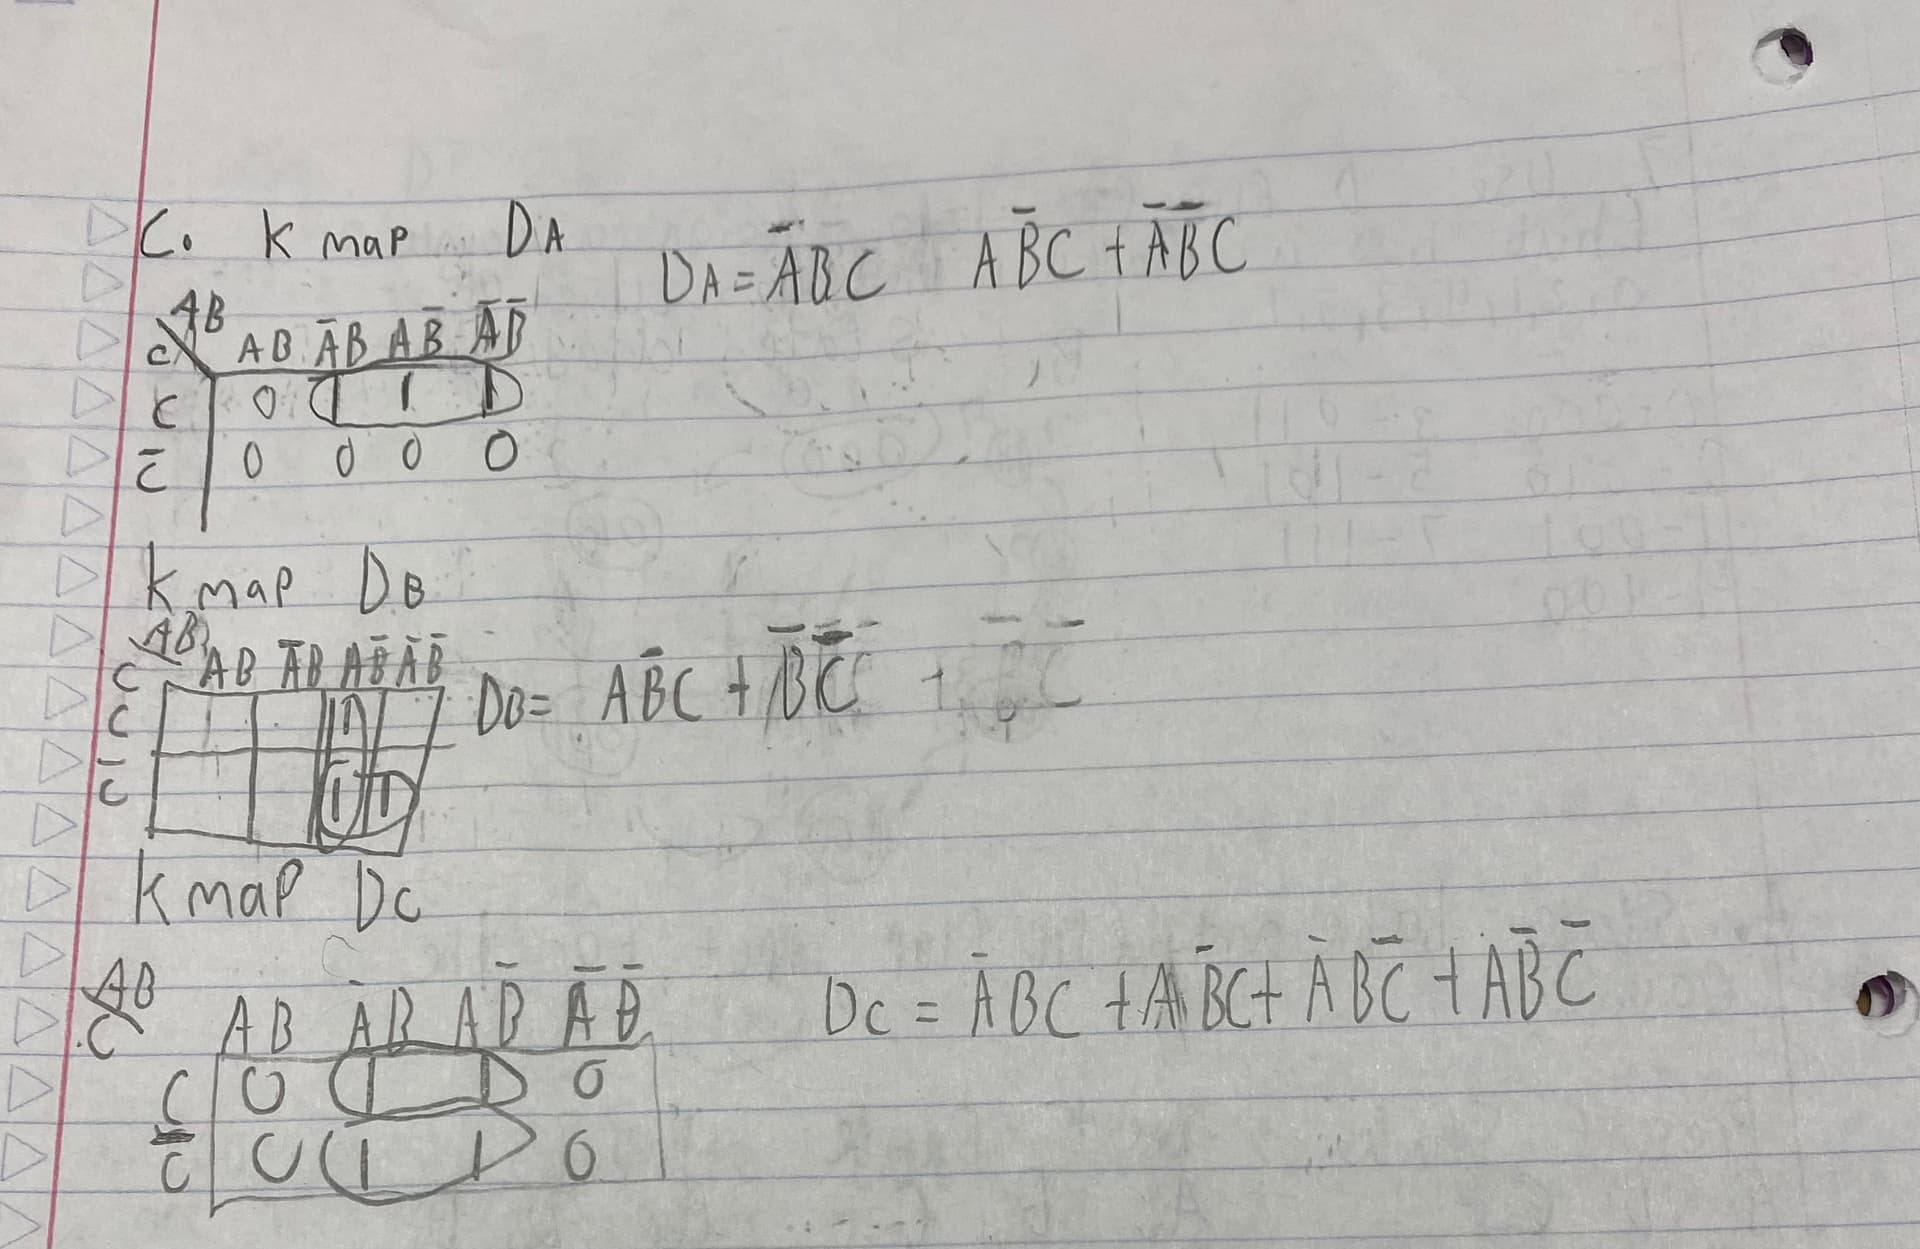 C. K map DA
DA = A̅BC AB̅C + A̅B̅C
AB
C AB A̅B AB̅ A̅B̅
C 0 1 1 1
C̅ 0 0 0 0
K map DB
AB
C AB A̅B AB̅ A̅B̅
C 1
C̅ 1 1
DB = AB̅C + B̅C̅
K map DC
AB
C AB A̅B AB̅ A̅B̅
C 0 1 1 0
C̅ 0 1 1 0
DC = A̅BC + AB̅C + A̅BC̅ + AB̅C̅